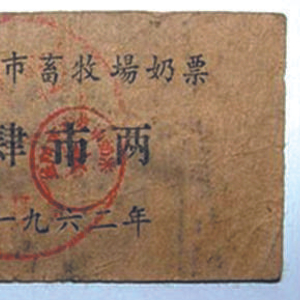 市畜牧場奶票
肆市两
一九六二年